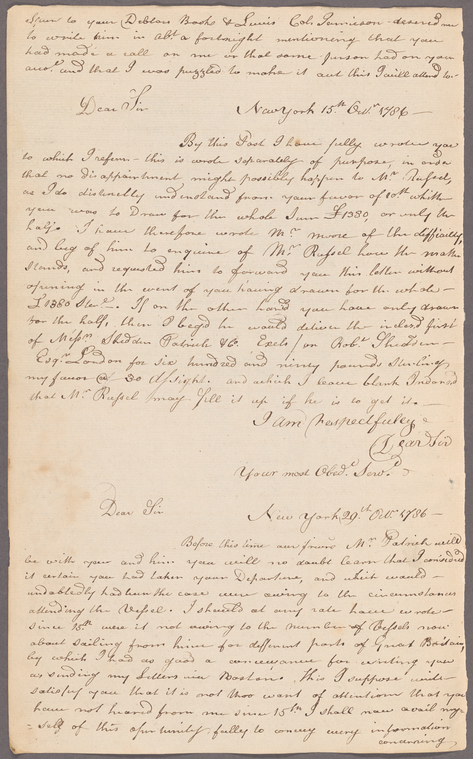 Spur to your Debtors Books & Lewis Col. Jamieson desired me
to write him in abt a fortnight mentioning that you
had made a call on me or that some person had on you
acct. and that I was puzzled to make it out this I will attend to.
Dear Sir
New York 15th Octr. 1786 —
By this Post I have fully wrote you
to which I refer — this is wrote separately of purpose, in order
that no disappointment might possibly happen to Mr. Russel,
as I do distinctly understand from your favor of 10th whither
you was to Draw for the whole Sum £1380, or only the
half. I have therefore wrote Mr. more of the difficulty,
and beg of him to enquire of Mr. Russel how the matter
stands, and requested him to forward you this letter without
opening in the event of you having drawn for the whole —
£1380 Sterg. If on the other hand you have only drawn
for the half, then I beg'd he would deliver the inclosed first
of Messrs. Shedden Patrick & Co. Exch. on Robt. Shedden
Esqr. London for six hundred and ninety pounds Sterling
my favor @ 30 d/sight. and which I leave blank Indorsed
that Mr. Russel may fill it up if he is to get it. —
I am respectfully
Dear Sir
Your most Obedt. Servt.
Dear Sir
New York 29th Octr. 1786 —
Before this time our friend Mr. Patrick will
be with you and him you will no doubt learn that I considered
it certain you had taken your Departure, and which would —
undoubtedly had been the case were owing to the circumstances
attending the Vessel. I should at any rate have wrote —
since 15th were it not owing to the number of Vessels now
about sailing from hence for different parts of Great Britain,
by which I had as good a conveyance for writing you
as sending my Letters via Boston. This I suppose will
satisfy you that it is not thro want of attention that you
have not heard from me since 15th I shall now avail my
-self of this opertunity fully to convey every information
concerning